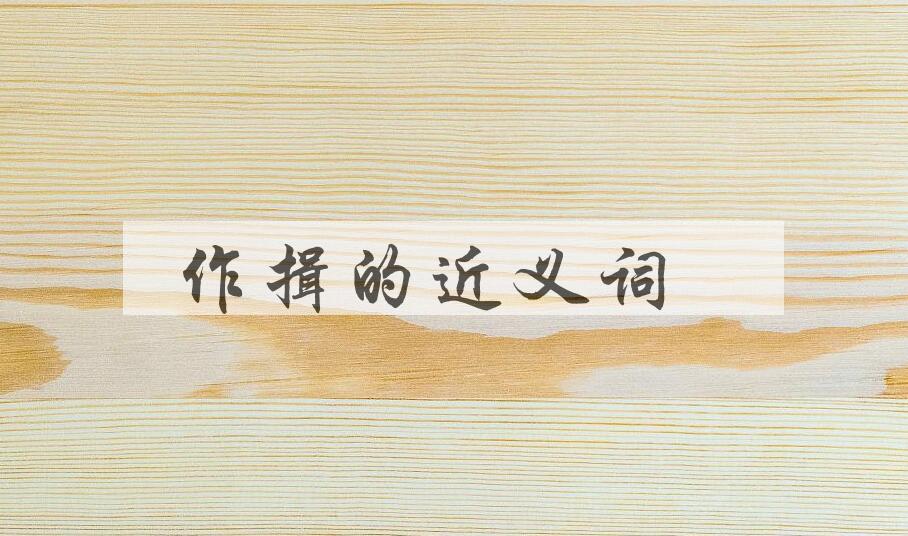 作揖的近义词